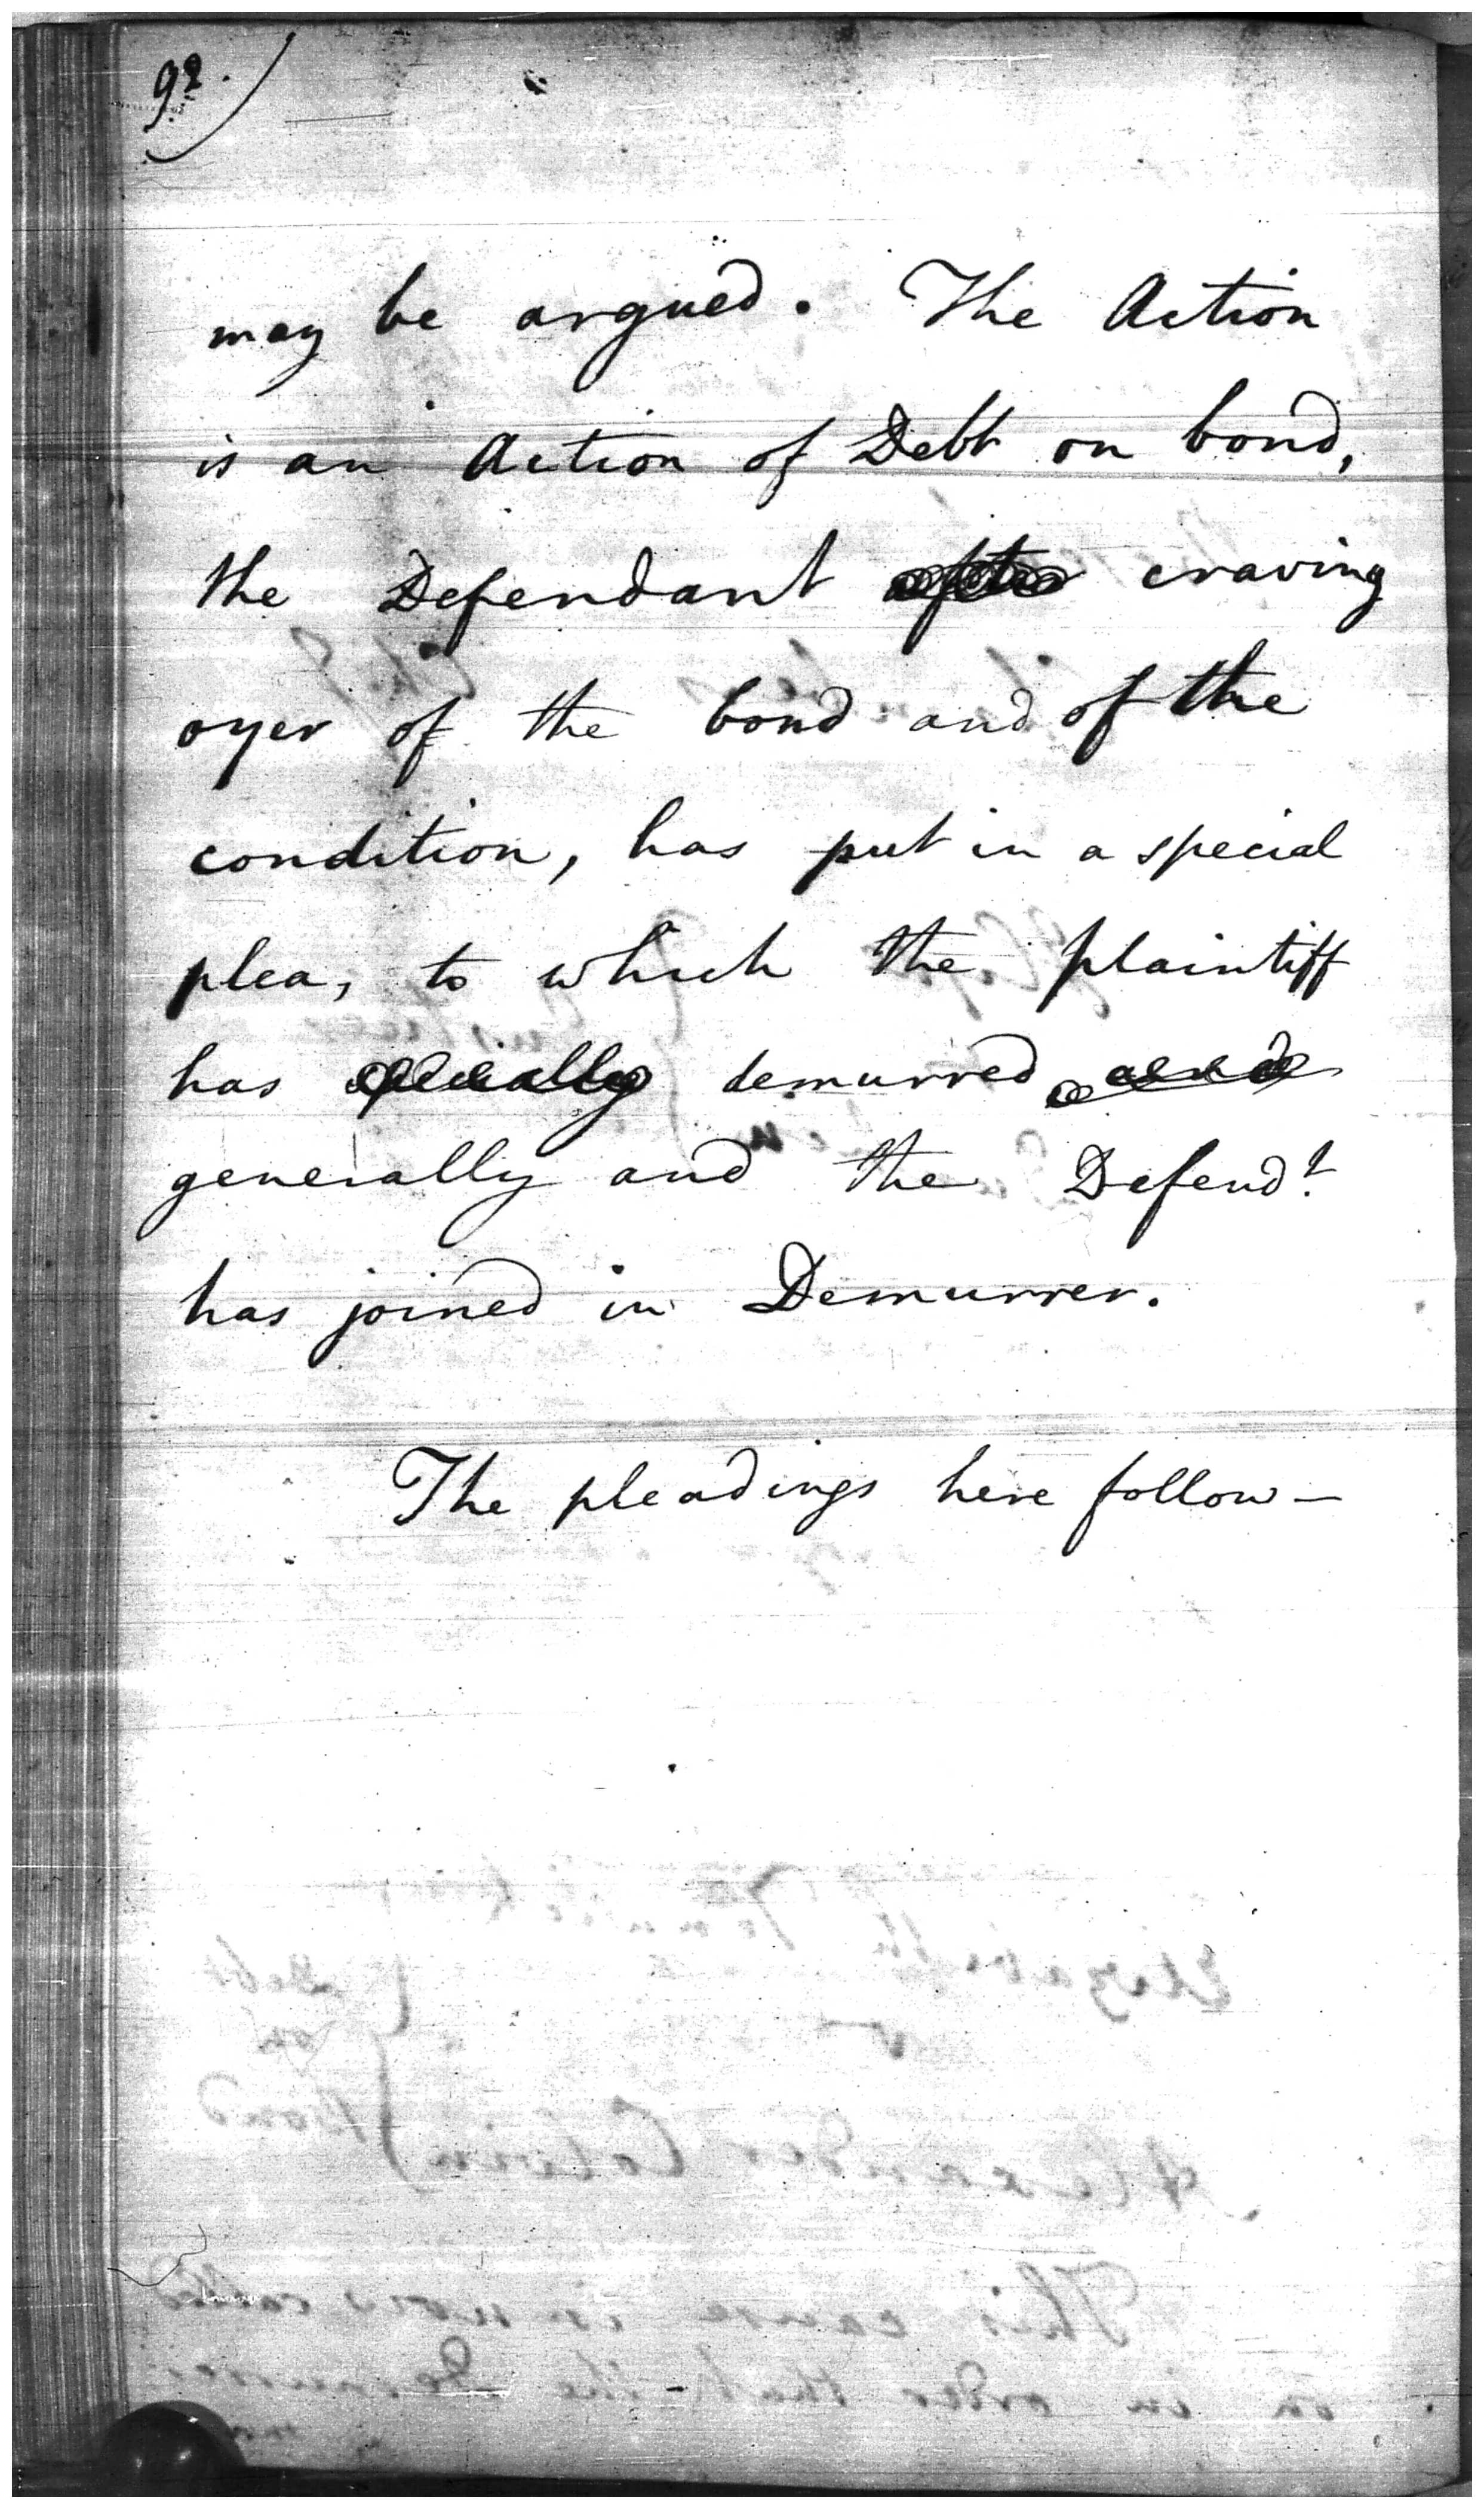 92.)
may be argued. The Action
is an Action of Debt on bond,
the Defendant after craving
oyer of the bond and of the
condition, has put in a special
plea, to which the plaintiff
has specially demurred and
generally and the Defendt
has joined in Demurrer.
The pleadings here follow—